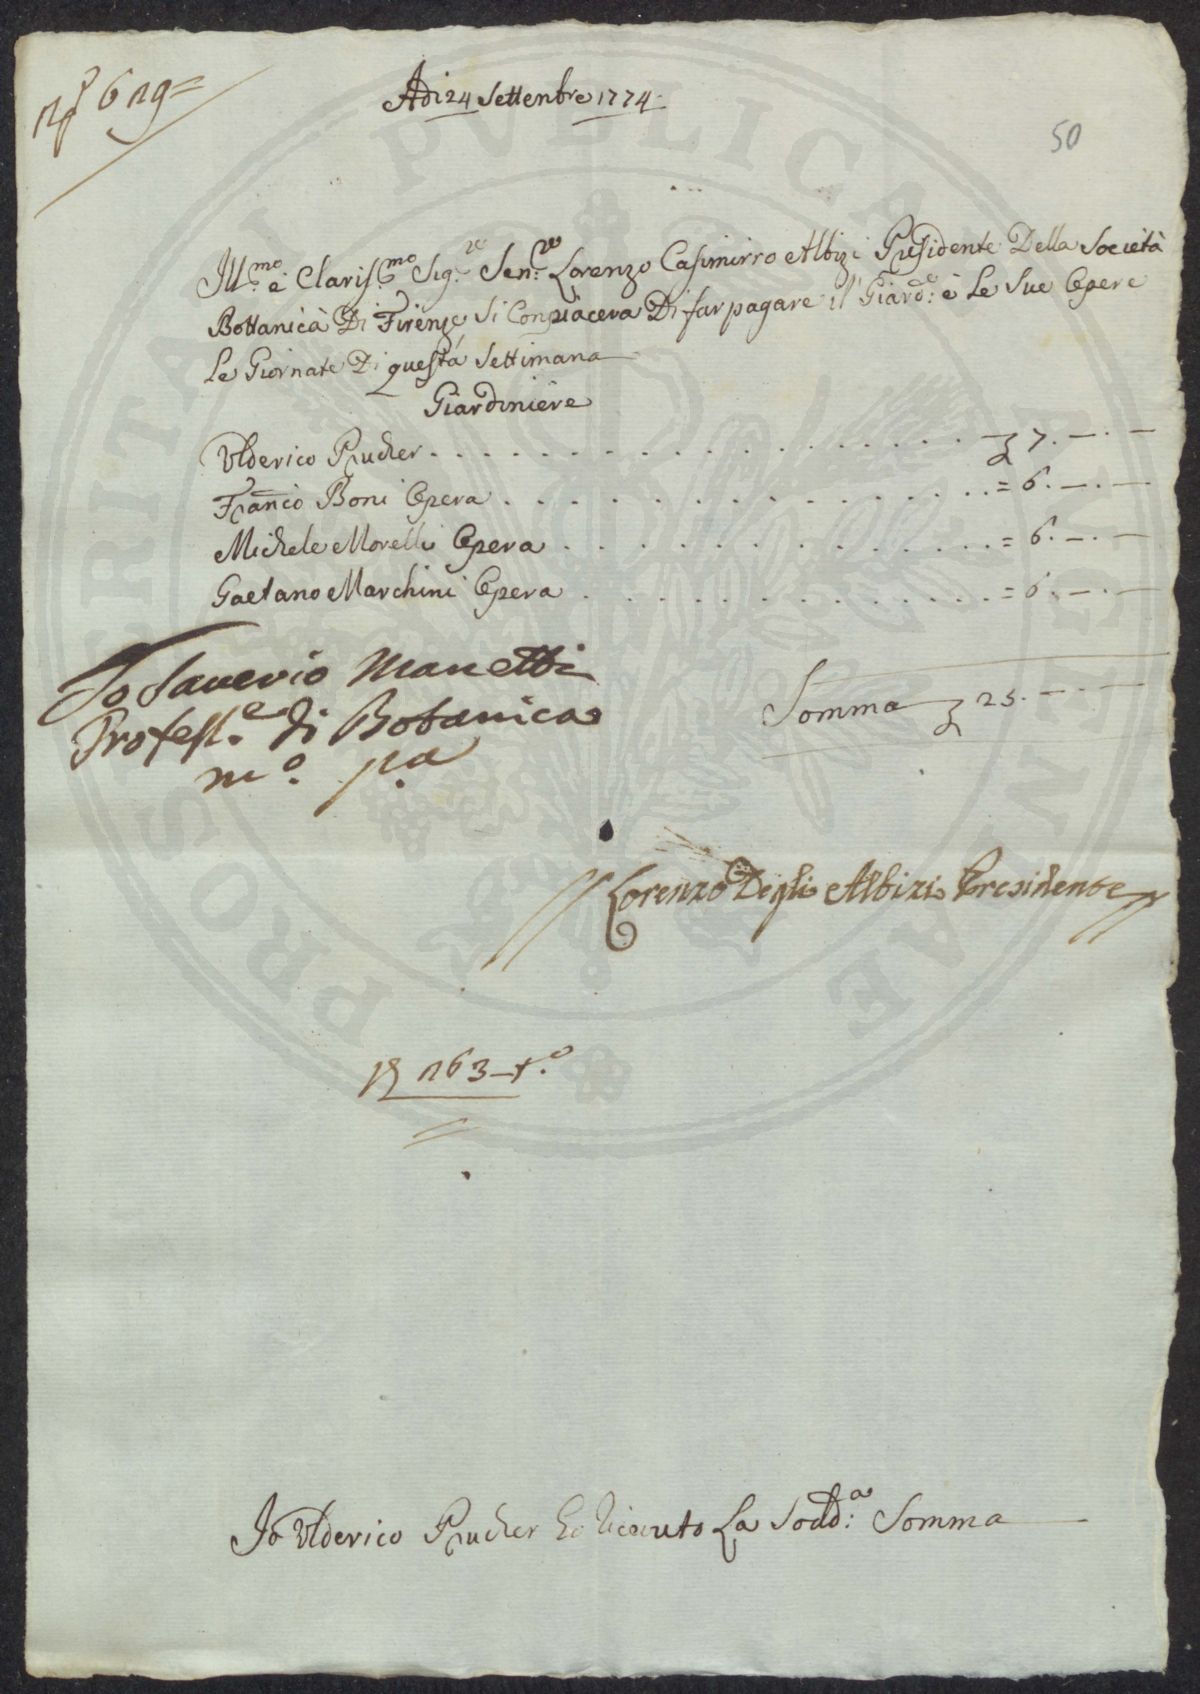 619=
Adi 24 Settenbre 1774.
50
Ill.mo è Claris.mo Sig.re Sen.re Lorenzo Casimirro Albizi Presidente Della Società
Bottanicà Di Firenze Si Conpiacera Di far pagare il Giard.e è Le Sue Opere
Le Giornate Di questá Settimana
Giardiniere
Ulderico Prucher . . . . . . . . . . . . . . . . 7. — . —
Franco Boni Opera . . . . . . . . . . . . . . = 6. — . —
Michele Morelli Opera . . . . . . . . . . . . = 6. — . —
Gaetano Marchini Opera . . . . . . . . . . . = 6. — . —
Somma 25. — . —
Io Saverio Manetti
Profess.e di Botanica
m.o p.a
Lorenzo Degli Albizi Presidente
163
Io Ulderico Prucher Ho Riceuto La Sodd.a Somma
PROSPERITATI PVBLICAE AVGENDAE